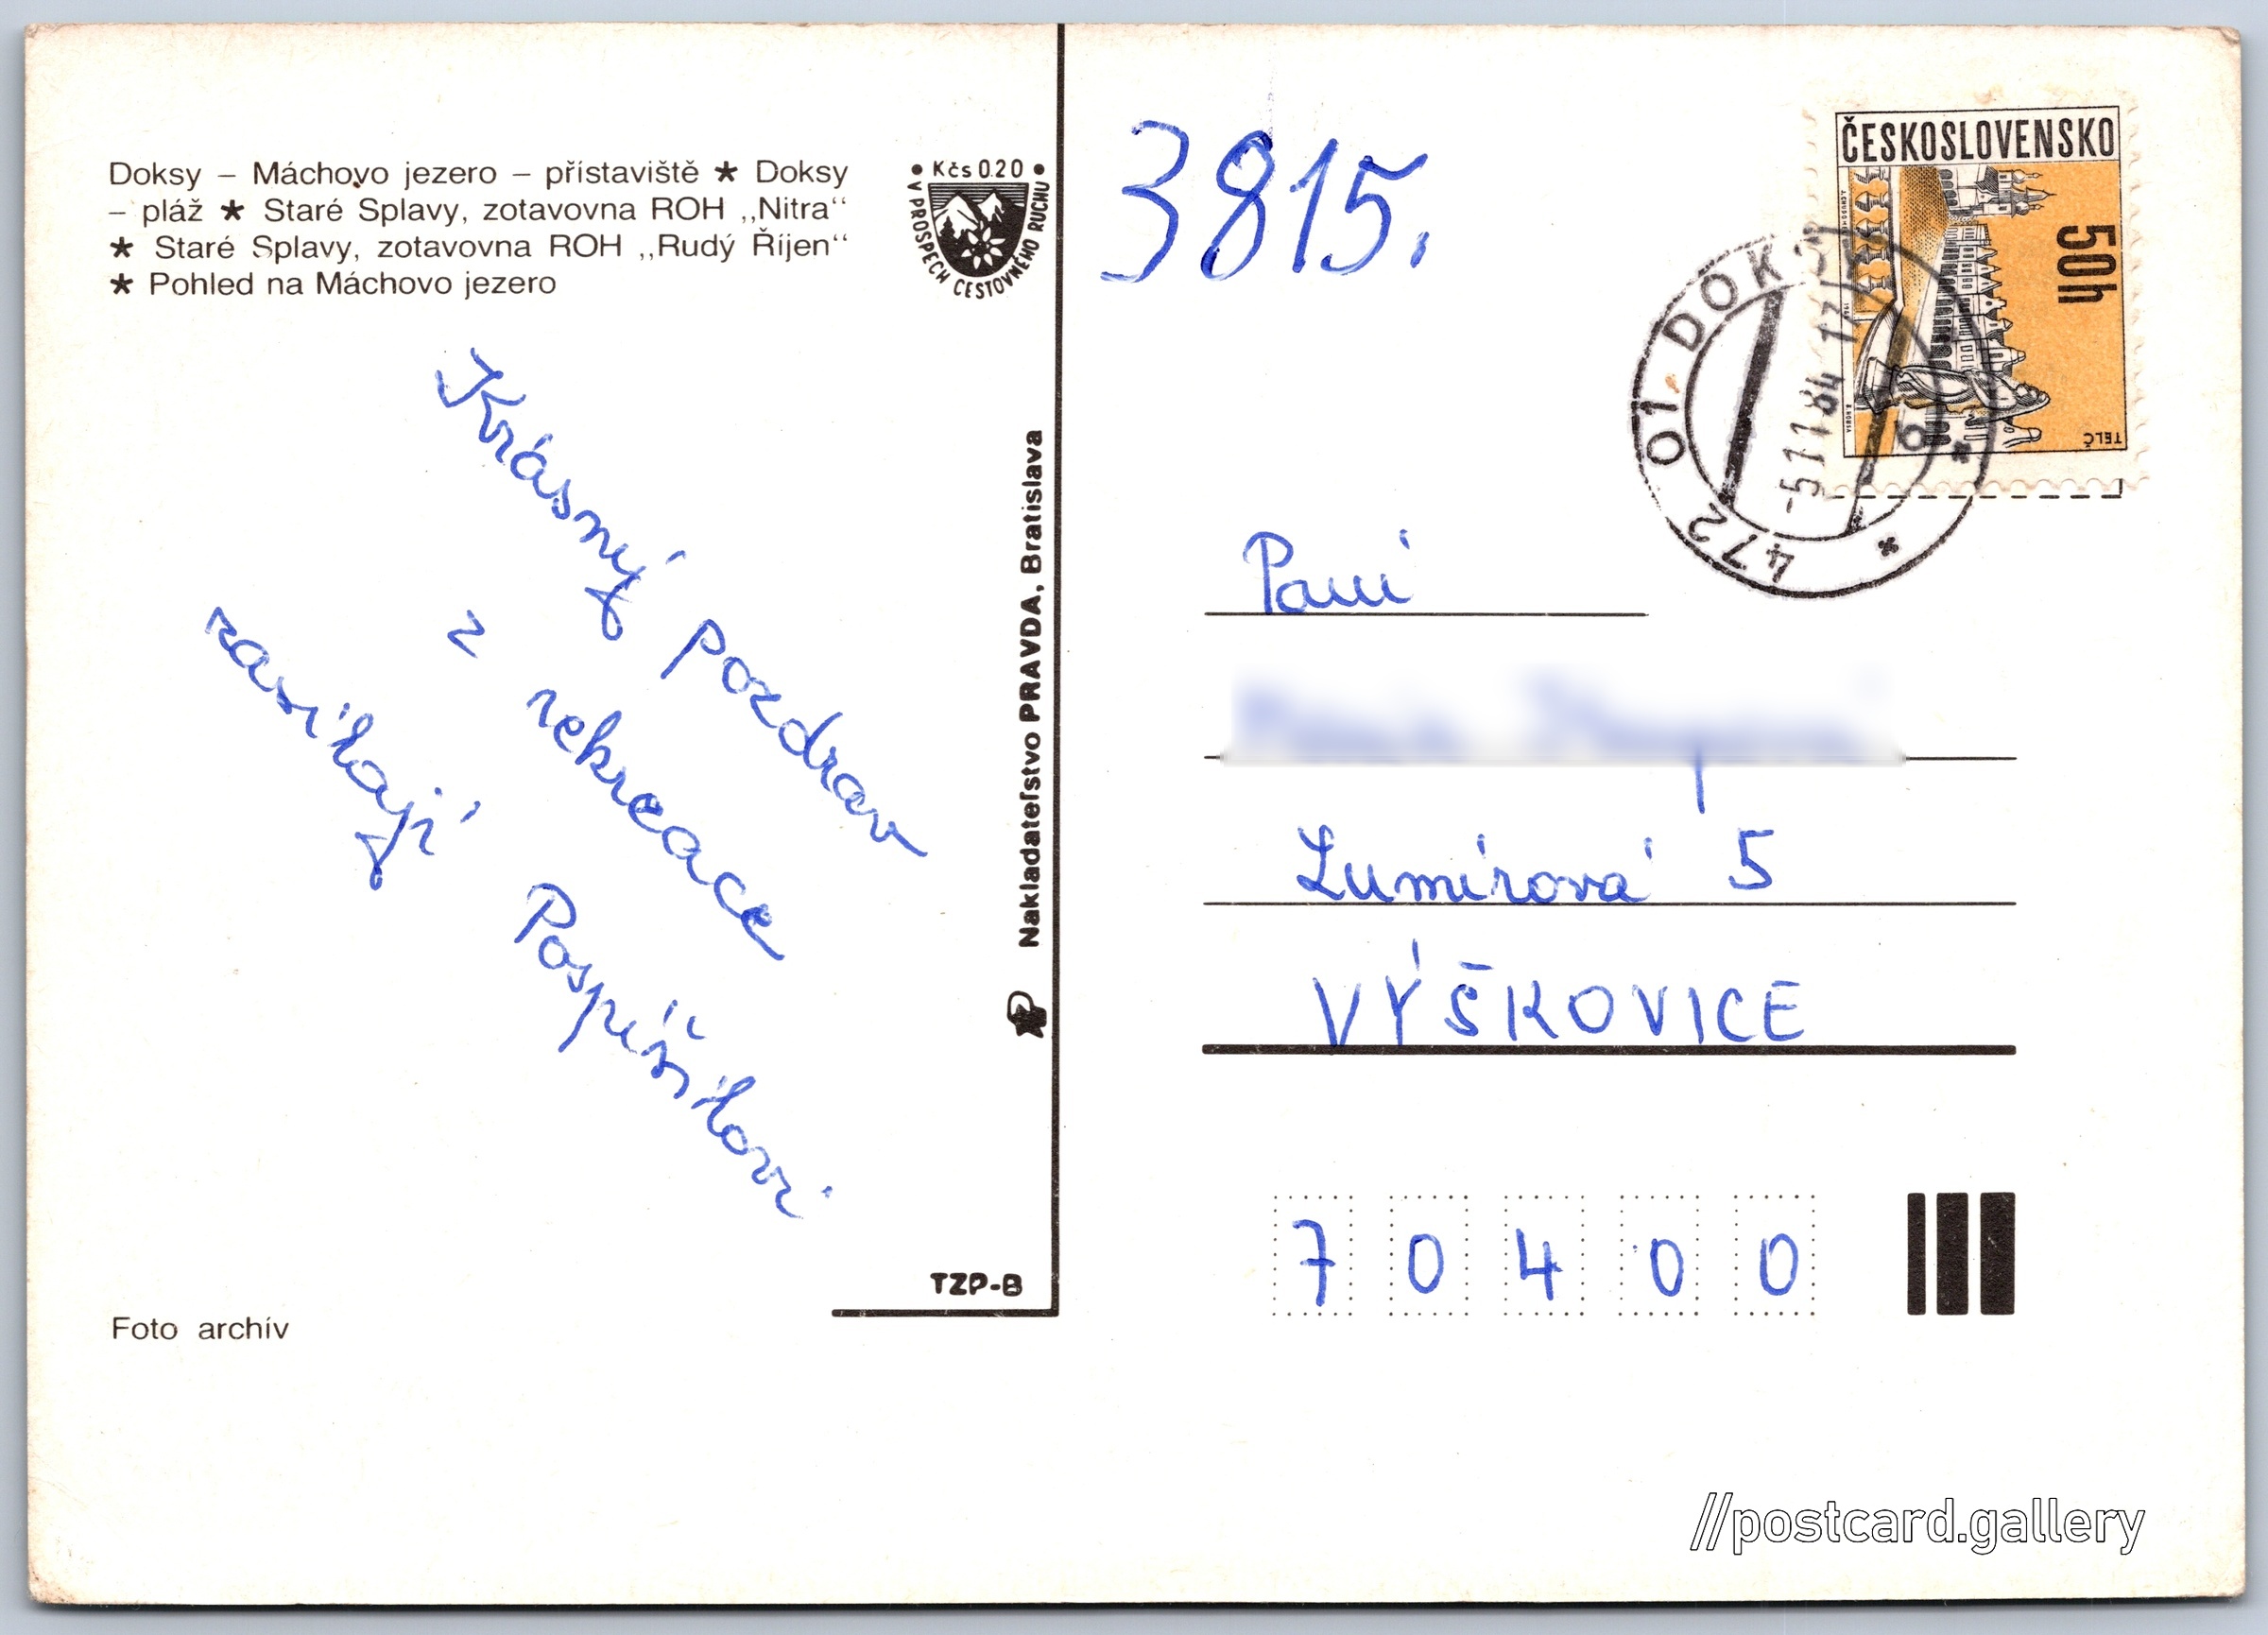 Doksy – Máchovo jezero – přístaviště ★ Doksy
– pláž ★ Staré Splavy, zotavovna ROH ,,Nitra“
★ Staré Splavy, zotavovna ROH ,,Rudý Říjen“
★ Pohled na Máchovo jezero
• Kčs 0.20 •
V PROSPĚCH CESTOVNÉHO RUCHU
Krásný pozdrav
z rekreace
zasílají
Pospíšilovi
Foto archív
Nakladateľstvo PRAVDA, Bratislava
TZP-B
3815.
ČESKOSLOVENSKO
50h
TELČ
472 01 DOKSY
-5.11.84 17
b
Paní
Lumírová 5
VÝŠKOVICE
70400
//postcard.gallery